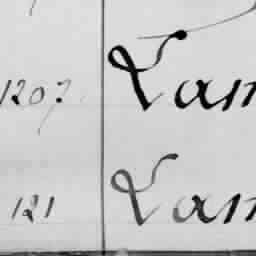 1207 Lam
121 Lam